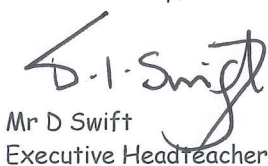 D.I. Swift
Mr D Swift
Executive Headteacher